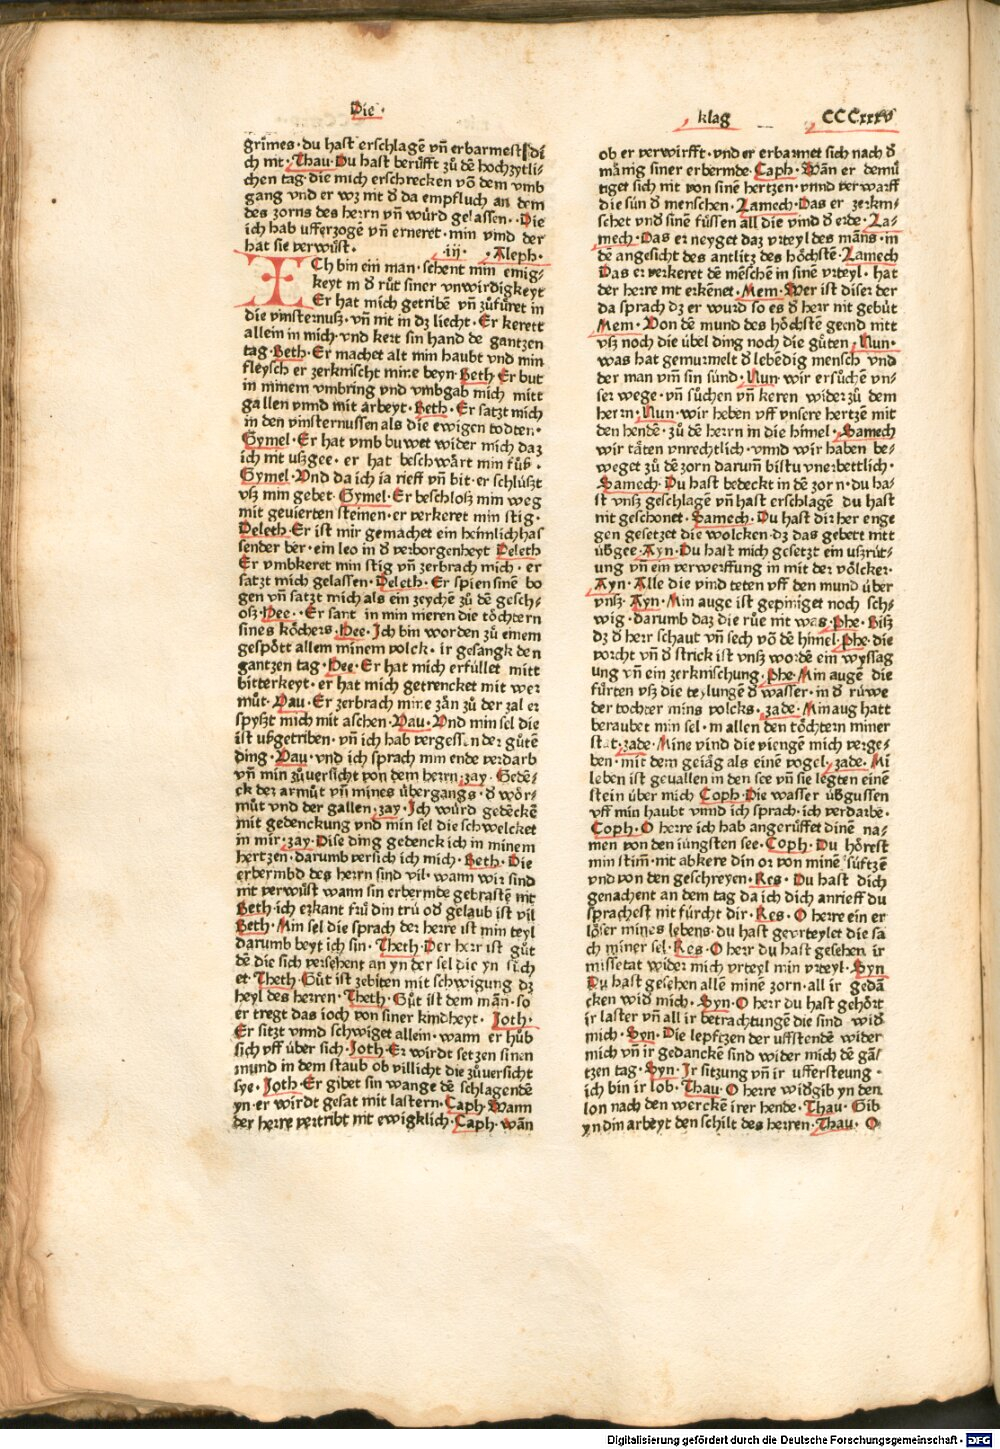 Die·
klag
CCCxxxv
grimes·du hast erschlagē vñ erbarmest di
ch nit·Thau·Du hast berůfft zů dē hochzytli⸗
chen tag·die mich erschrecken võ dem vmb
gang vnd er wz nit đ da empfluch an dem
des zorns des herrn vñ würd gelassen··Die
ich hab vfferzogē vñ erneret·min vind der
hat sie verwůst·
·iij· ·Aleph·
ICh bin ein man·sehent min emig⸗
keyt in đ růt siner vnwirdigkeyt
Er hat mich getribē vñ zůfůret in
die vinsternusz·vñ nit in dz liecht·Er kerett
allein in mich·vnd kert sin hand de gantzen
tag·Beth·Er machet alt min haubt vnd min
fleysch er zerknischt mine beyn·Beth·Er but
in minem vmbring vnd vmbgab mich mitt
gallen vnnd mit arbeyt·Beth·Er satzt mich
in den vinsternussen als die ewigen todten·
Gymel·Er hat vmb buwet wider mich daz
ich nit uszgee·er hat beschwårt min fůß·
Gymel·Vnd da ich ia rieff vñ bit·er schlüszt
vsz min gebet·Gymel·Er beschlosz min weg
mit gevierten steinen·er verkeret min stig·
Deleth·Er ist mir gemachet ein heimlichhas
sender ber·ein leo in đ verborgenheyt Deleth
Er vmbkeret min stig vñ zerbrach mich·er
satzt mich gelassen·Deleth·Er spien sinē bo
gen vñ satzt mich als ein zeychē zů dē gesch⸗
osz·Hee··Er sant in min nieren die töchtern
sines köchers·Hee·Ich bin worden zů einem
gespött allem minem volck·ir gesangk den
gantzen tag·Hee·Er hat mich erfüllet mitt
bitterkeyt·er hat mich getrencket mit wer
můt·Vau·Er zerbrach mine zån zů der zal er
spyßzt mich mit aschen·Vau·Vnd min sel die
ist vßgetriben·vñ ich hab vergessen der gůtē
ding·Vau·vnd ich sprach min ende verdarb
vñ min zůversicht von dem herrn·zay·Gedē⸗
ck der armůt vñ mines übergangs·đ wör⸗
můt vnd der gallen·zay·Ich würd gedēckē
mit gedenckung vnd min sel die schwelcket
in mir·zay·Dise ding gedenck ich in minem
hertzen·darumb versich ich mich·Beth·Die
erbermbd des herrn sind vil·wann wir sind
nit verwůst wann sin erbermde gebrastē nit
Beth·ich erkant frů din trü ođ gelaub ist vil
Beth·Min sel die sprach der herre ist min teyl
darumb beyt ich sin·Theth·Der herr ist gůt
dē die sich versehent an yn der sel die yn sůch
et·Theth·Gůt ist zebiten mit schwigung dz
heyl des herren·Theth·Gůt ist dem mañ·so
er tregt das ioch von siner kindheyt·Joth·
Er sitzt vnnd schwiget allein·wann er hůb
sich vff über sich·Joth·Er wirdt setzen sinen
mund in dem staub ob villicht die zůversicht
sye·Joth·Er gibet sin wange dē schlagendē
yn·er wirdt gesat mit lastern·Caph·Wann
der herre vertribt nit ewigklich·Caph·wãn
ob er verwirfft·vnd er erbarmet sich nach đ
mãnig siner erbermde·Caph·Wãn er demů
tiget sich nit von sinē hertzen·vnnd verwarff
die sün đ menschen·Lamech·Das er zerkni⸗
schet vnđ sinē füssen all die vind đ erde·La⸗
mech·Das er neyget daz vrteyl des mãns·in
dē angesicht des antlitz des höchstē·Lamech
Das er verkeret dē mēschē in sinē vrteyl·hat
der herre nit erkēnet·Mem·Wer ist diser der
da sprach dz er wurd so es đ herr nit gebüt
Mem·Von dē mund des höchstē geend nitt
vsz noch die übel ding noch die gůten·Nun·
was hat gemurmelt đ lebēdig mensch vnd
der man vm̄ sin sünd·Nun·wir ersůchē vn⸗
ser wege·vñ sůchen vñ keren wider zů dem
herrn·Nun·wir heben vff vnsere hertzē mit
den hendē·zů dē herrn in die himel·Samech
wir tåten vnrechtlich·vnnd wir haben be⸗
weget zů dē zorn darum̄ bistu vnerbettlich·
Samech·Du hast bedeckt in dē zorn·du ha⸗
st vnsz geschlagē vñ hast erschlagē du hast
nit geschonet·Samech·Du hast dir her enge
gen gesetzet die wolcken·dz das gebett nitt
übgee·Ayn·Du hast mich gesetzt ein uszrüt⸗
ung vñ ein verwerffung in mit der völcker·
Ayn·Alle die vind teten vff den mund über
vnsz·Ayn·Min auge ist gepiniget noch sch⸗
wig·darumb daz die růe nit was·Phe·Bisz
dz đ herr schaut vñ sech võ dē himel·Phe·die
vorcht vñ đ strick ist vnsz wordē ein wyssag
ung vñ ein zerknischung·Phe·Min augē die
fůrten vsz die teylungē đ wasser·in đ růwe
der tochter mins volcks·zade·Min aug hatt
beraubet min sel·in allen den töchtern miner
stat·zade·Mine vind die viengē mich verge⸗
ben·mit dem geiåg als einē vogel·zade·Mi
leben ist gevallen in den see vñ sie legten einē
stein über mich Coph·Die wasser übgussen
vff min haubt vnnd ich sprach·ich verdarbe·
Coph·O herre ich hab angerůffet dinē na⸗
men von den iüngsten see·Coph·Du hörest
min stim̄·nit abkere din or von minē süftzē
vnd von den geschreyen·Res·Du hast dich
genachent an dem tag da ich dich anrieff du
sprachest nit fürcht dir·Res·O herre ein er
löser mines lebens·du hast gevrteylet die sa
ch miner sel·Res·O herr du hast gesehen ir
missetat wider mich vrteyl min vrteyl·Syn
Du hast gesehen allē minē zorn·all ir gedã
cken wiđ mich·Syn·O herr du hast gehört
ir laster vñ all ir betrachtungē die sind wiđ
mich·Syn·Die lepftzen der uffstendē wider
mich vñ ir gedanckē sind wider mich dē gã⸗
tzen tag·Syn·Ir sitzung vñ ir uffersteung·
ich bin ir lob·Thau·O herre wiđgib yn den
lon nach den werckē irer hende·Thau·Gib
yn din arbeyt den schilt des herren·Thau·O
Digitalisierung gefördert durch die Deutsche Forschungsgemeinschaft · DFG